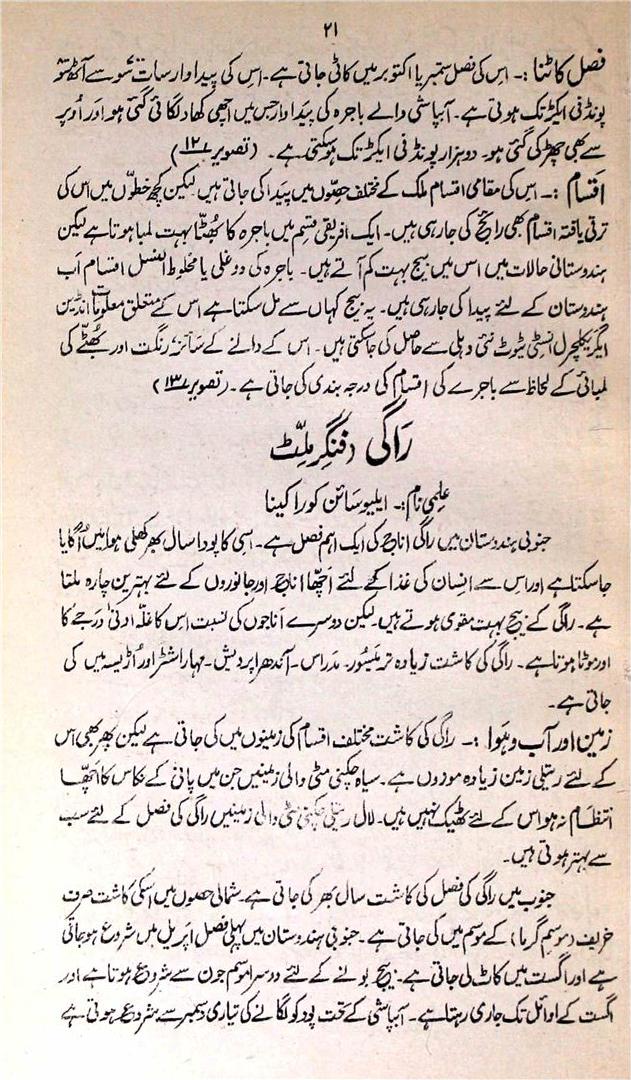 ۲۱
فصل کاٹنا :۔ اس کی فصل ستمبر یا اکتوبر میں کاٹی جاتی ہے۔ اس کی پیداوار سات سو سے آٹھ سو
پونڈ فی ایکڑ تک ہوتی ہے۔ آبپاشی والے باجرہ کی پیداوار جس میں اچھی کھاد لگائی گئی ہو اور اُوپر
سے بھی چھڑکی گئی ہو۔ دو ہزار پونڈ فی ایکڑ تک ہو سکتی ہے۔ (تصویر ۱۲)
اقسام :۔ اس کی مقامی اقسام ملک کے مختلف حصّوں میں پیدا کی جاتی ہیں لیکن کچھ خطّوں میں اس کی
ترقی یافتہ اقسام بھی رائج کی جا رہی ہیں۔ ایک افریقی قسم میں باجرہ کا بھُٹّا بہت لمبا ہوتا ہے لیکن
ہندوستانی حالات میں اس میں بیج بہت کم آتے ہیں۔ باجرہ کی دوغلی یا مخلوط النسل اقسام اَب
ہندوستان کے لئے پیدا کی جا رہی ہیں۔ یہ بیج کہاں سے مل سکتا ہے اس کے متعلق معلومات انڈین
ایگریکلچرل انسٹی ٹیوٹ نئی دہلی سے حاصل کی جا سکتی ہیں۔ اس کے دانے کے سائز، رنگت اور بھُٹے کی
لمبائی کے لحاظ سے باجرے کی اقسام کی درجہ بندی کی جاتی ہے۔ (تصویر ۱۳)
رَاگی (فنگر مِلِّٹ
علمی نام :۔ ایلیوسائن کوراکینا
جنوبی ہندوستان میں راگی اناج کی ایک اہم فصل ہے۔ اسی کا پودا سال بھر کھُلی ہوا میں اُگایا
جا سکتا ہے اور اس سے انسان کی غذا کے لئے اَچھّا اناج اور جانوروں کے لئے بہترین چارہ ملتا
ہے۔ راگی کے بیج بہت مقوی ہوتے ہیں۔ لیکن دوسرے اَناجوں کی نسبت اس کا غلّہ ادنیٰ دَرجے کا
اور موٹا ہوتا ہے۔ راگی کی کاشت زیادہ تر میسُور۔ مدراس۔ آندھرا پردیش۔ مہاراشٹر اور اُڑیسہ میں کی
جاتی ہے۔
زمین اور آب و ہَوا :۔ راگی کی کاشت مختلف اقسام کی زمینوں میں کی جاتی ہے لیکن پھر بھی اس
کے لئے ریتلی زمین زیادہ موزوں ہے۔ سیاہ چکنی مٹی والی زمینیں جن میں پانی کے نکاس کا اَچھّا
انتظام نہ ہو اس کے لئے ٹھیک نہیں ہیں۔ لال ریتلی چکنی مٹی والی زمینیں راگی کی فصل کے لئے سب
سے بہتر ہوتی ہیں۔
جنوب میں راگی کی فصل کی کاشت سال بھر کی جاتی ہے۔ شمالی حصوں میں اسکی کاشت صرف
خریف (موسم گرما) کے موسم میں کی جاتی ہے۔ جنوبی ہندوستان میں پہلی فصل اپریل میں شروع ہو جاتی
ہے اور اگست میں کاٹ لی جاتی ہے۔ بیج بونے کے لئے دوسرا موسم جون سے شروع ہوتا ہے اور
اگست کے اوائل تک جاری رہتا ہے۔ آبپاشی کے تحت پود کو لگانے کی تیاری دسمبر سے شروع ہوتی ہے